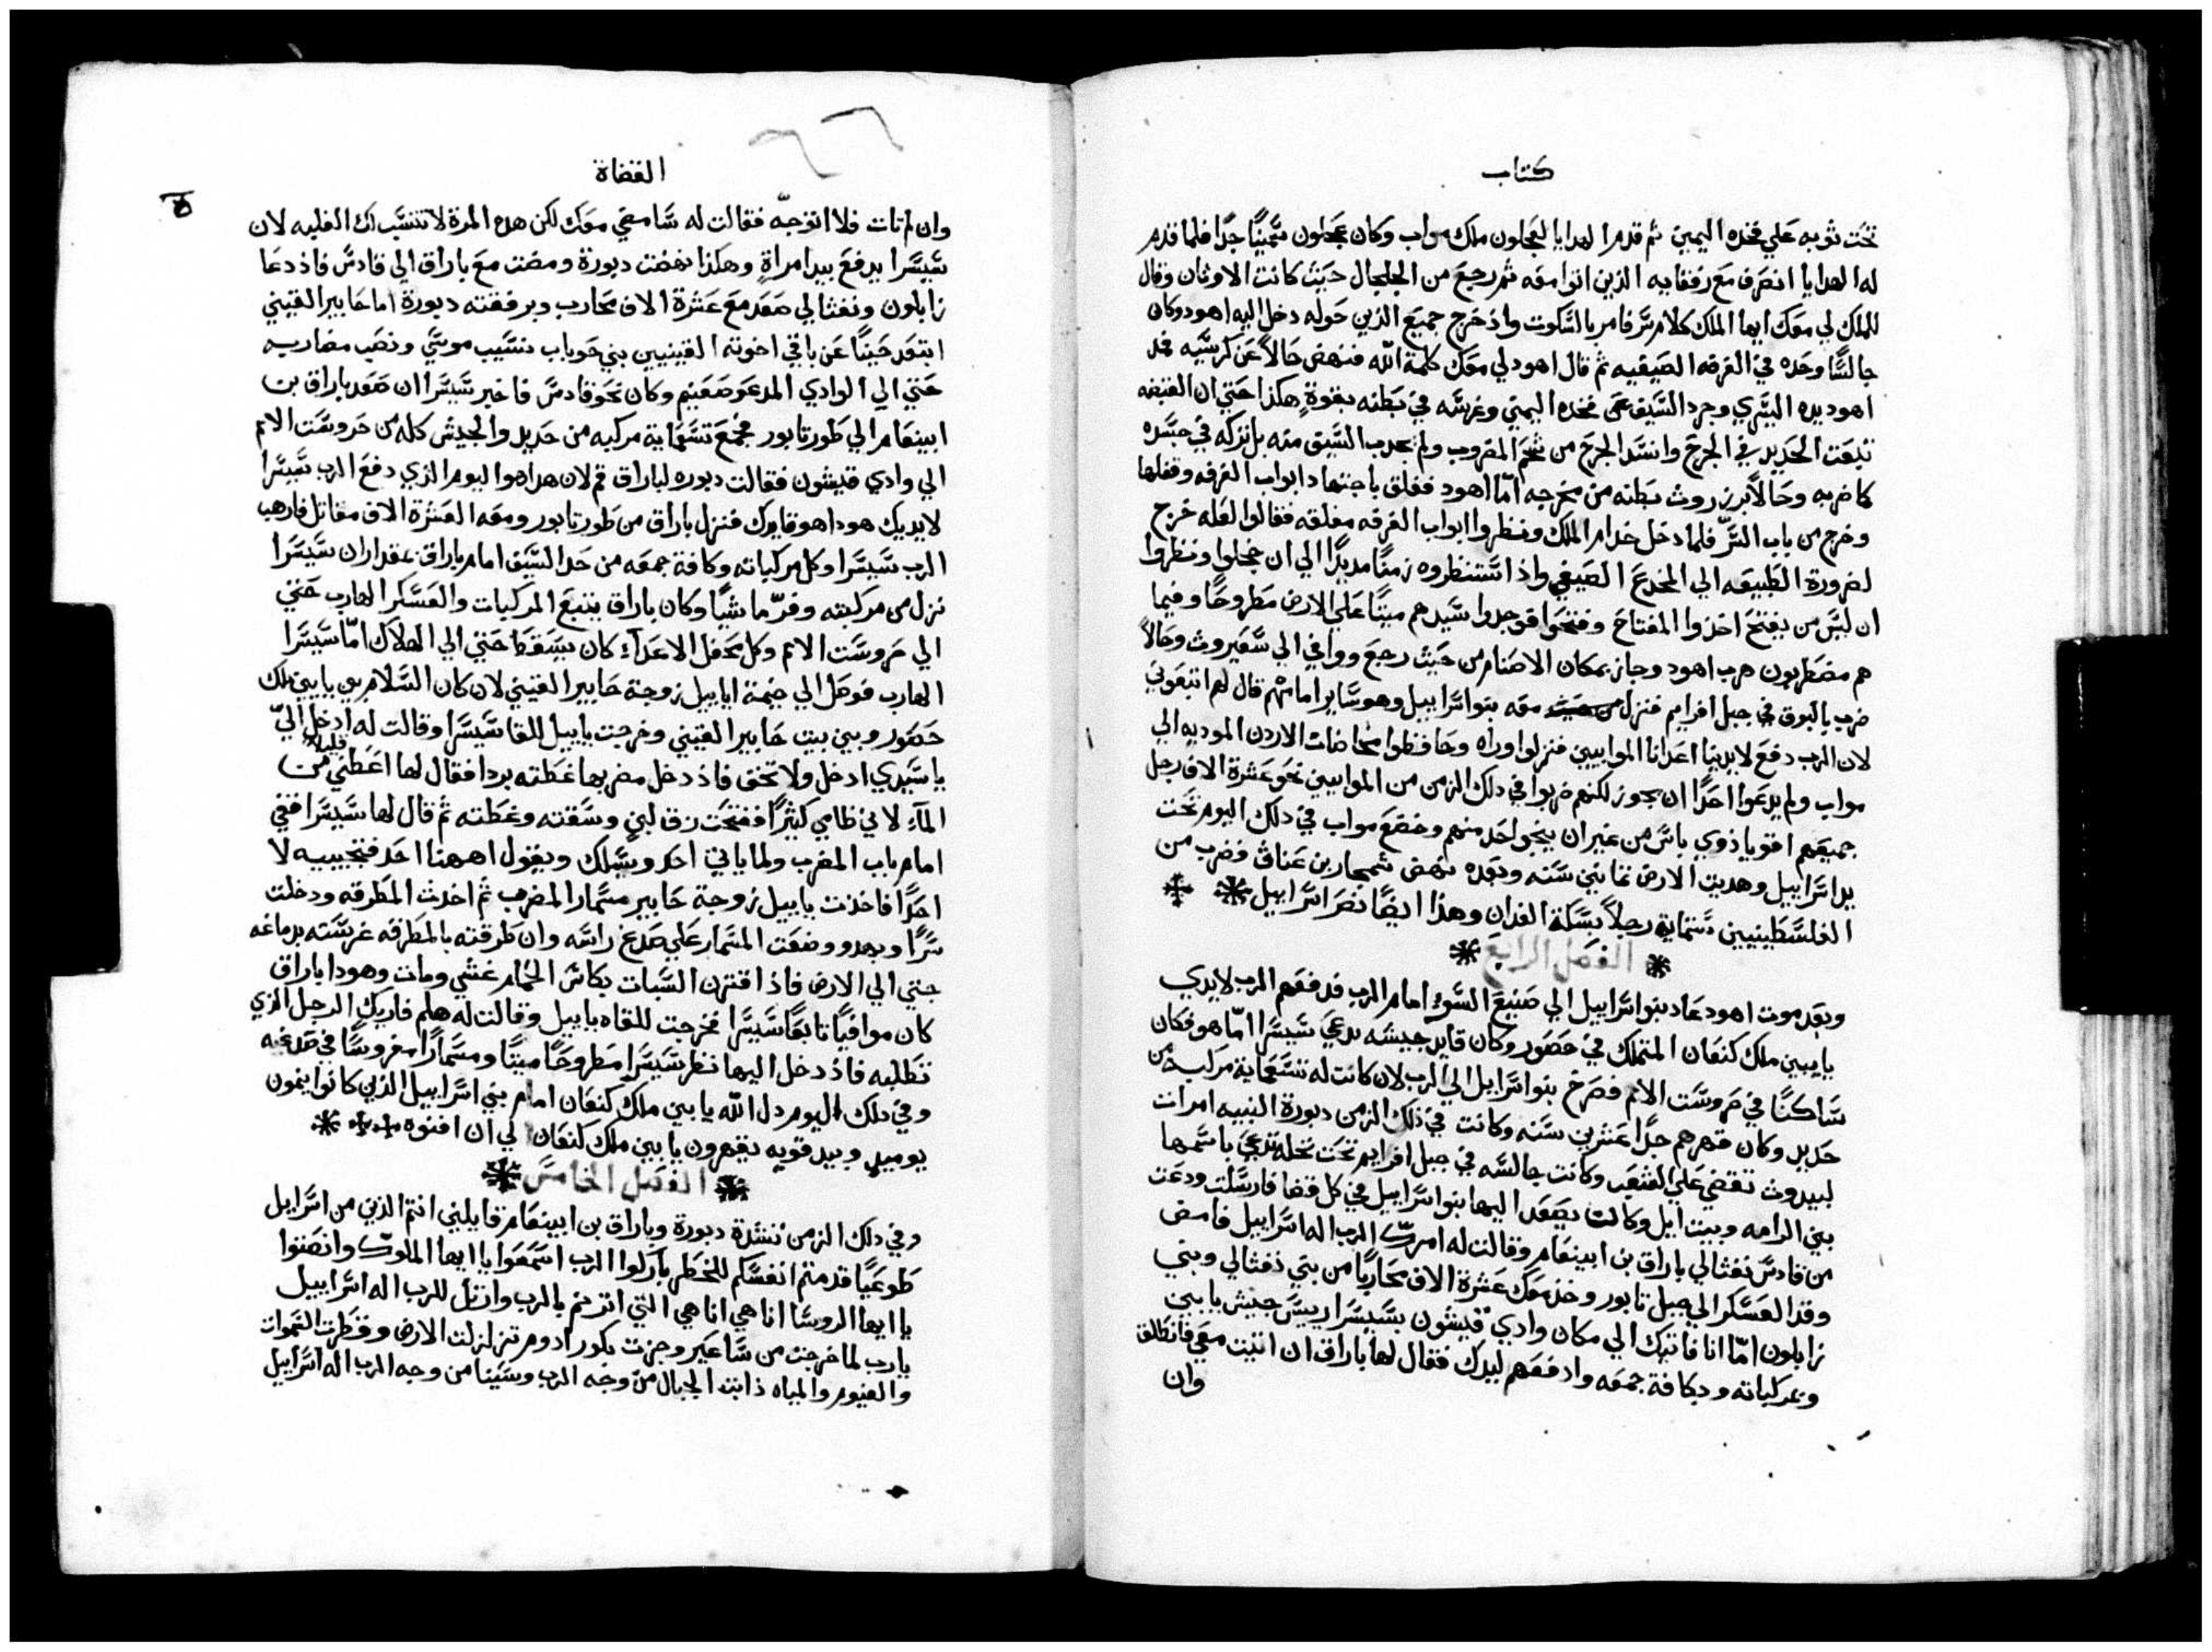 كتاب
تحت ثوبه علي فخده اليمين ثم قدم الهدايا لعجلون ملك مواب وكان عجلون سمينًا جدًا فلما قدم
له الهدايا انصرف مع رفقايه الذين اتوا معه ثم رجع من الجلجال حيث كانت الاوثان وقال
للملك لي معك ايها الملك كلام سر فامر بالسكوت واذ خرج جميع الذين حوله دخل اليه اهود وكان
جالسًا وحده في الغرفه الصيفيه ثم قال اهود لي معك كلمة الله فنهض حالاً عن كرسيه فمد
اهود يده اليسري وجرد السيف عن فخده اليمني وغرسه في بطنه بقوةٍ هكذا حتي ان القبضه
تبعت الحديد في الجرح وانسد الجرح من شحم المضروب ولم يجدب السيف منه بل تركه في جسده
كما ضربه وحالاً برز روث بطنه من مخرجه امّا اهود فغلق باجتهاد ابواب الغرفه وقفلها
وخرج من باب السرّ فلما دخل خدام الملك ونظروا ابواب الغرفه مغلقه فقالوا لعله خرج
لضرورة الطبيعه الي المخدع الصيفي واذ استنظروه زمنًا مديدًا الي ان خجلوا ونظروا
ان ليس من يفتح اخذوا المفتاح وفتحوا فوجدوا سيدهم ميتًا علي الارض مطروحًا وفيما
هم مضطربون هرب اهود وجاز بمكان الاصنام من حيث رجع ووافي الي سعيروث وحالاً
ضرب بالبوق في جبل افرايم فنزل معه بنوا اسراييل وهو ساير امامهم قال لهم اتبعوني
لان الرب دفع لايدينا اعدانا الموابيين فنزلوا وراه وحافظوا مخاضات الاردن الموديه الي
مواب ولم يدعوا احدًا ان يجوز لكنهم ضربوا في دلك الزمن من الموابيين نحو عشرة الاف رجل
جميعهم اقويا ذوي باس من غير ان ينجو احد منهم وخضع مواب في دلك اليوم تحت
يد اسراييل وهديت الارض ثمانين سنه وبعده نهض شمجار بن عناق فضرب من
الفلسطينيين ستماية رجلاً بسكة الفدان وهذا ايضًا نصر اسراييل
الفصل الرابع
وبعد موت اهود عاد بنوا اسراييل الي صنيع السوء امام الرب فدفعهم الرب لايدي
يابين ملك كنعان المتملك في حصور وكان قايد جيشه يدعي سيسرا امّا هو فكان
ساكنًا في حروست الامم فصرخ بنوا اسراييل الي الرب لان كانت له تسعماية مركبه من
حديد وكان قهرهم جدًا عشرين سنه وكانت في ذلك الزمن دبورة النبيه امرات
لبيدوث تقضي علي الشعب وكانت جالسه في جبل افرايم تحت نخله تدعي باسمها
بين الرامه وبيت ايل وكانت يصعد اليها بنوا اسراييل في كل قضا فارسلت ودعت
من قادس نفثالي باراق بن ابينعام وقالت له امرك الرب اله اسراييل فامض
وقد العسكر الي جبل تابور وخذ معك عشرة الاف محاربًا من بني نفثالي وبني
زابلون امّا انا فاتيك الي مكان وادي قيشون بسيسرا رييس جيش يابين
وبمركباته وبكافة جمعه وادفعهم ليدك فقال لها باراق ان اتيت معي فانطلق
وان
القضاة
٥
وان لم تات فلا اتوجّه فقالت له سامضي معك لكن هذه المرة لا تنسب لك الغلبه لان
سيسرا يدفع بيد امراةٍ وهكذا نهضت دبورة ومضت مع باراق الي قادس فاذ دعا
زابلون ونفثالي صعد مع عشرة الاف محارب وبرفقته دبورة اما حابير القيني
ابتعد حينًا عن باقي اخوته القينيين بني حوباب نسيب موسي ونصب مضاربه
حتي الي الوادي المدعو صعنيم وكان نحو قادس فاخبر سيسرا ان صعد باراق بن
ابينعام الي طور تابور فجمع تسعماية مركبه من حديد والجيش كله من حروست الامم
الي وادي قيشون فقالت دبوره لباراق قم لان هدا هوا اليوم الذي دفع الرب سيسرا
لايديك هودا هو قايدك فنزل باراق من طور تابور ومعه العشرة الاف مقاتل فارهب
الرب سيسرا وكل مركباته وكافة جمعه من حد السيف امام باراق بمقدار ان سيسرا
نزل من مركبته وفرّ ماشيًا وكان باراق يتبع المركبات والعسكر الهارب حتي
الي حروست الامم وكل محفل الاعداء كان يسقط حتي الي الهلاك امّا سيسرا
الهارب فوصل الي خيمة اياييل زوجة حابير القيني لان كان السلام بين يابين ملك
حصور وبين بيت حابير القيني وخرجت ياييل للقا سيسرا وقالت له ادخل اليّ
يا سيدي ادخل ولا تخف فاذ دخل مضربها غطته بردا فقال لها اعطني قليلاً من
المآء لاني ظامي كثيرًا ففتحت زق لبنٍ وسقته وغطته ثم قال لها سيسرا قفي
امام باب المضرب ولما ياتي احد ويسلك ويقول اههنا احد فتجيبيه لا
احدًا فاخذت ياييل زوجة حابير مسمار المضرب ثم اخدث المطرقه ودخلت
سرًا وبهدو وضعت المسمار علي صدغ راسه وان طرقته بالمطرقه غرسته بدماغه
حتي الي الارض فاذ اقترن السبات بكاس الحمام غشي ومات وهودا باراق
كان موافيًا تابعًا سيسرا فخرجت للقاه ياييل وقالت له هلم فاريك الرجل الذي
تطلبه فاذ دخل اليها نظر سيسرا مطروحًا ميتًا ومسمارًا مغروسًا في صدغيه
وفي دلك اليوم دل الله يابين ملك كنعان امام بني اسراييل الذين كانوا ينمون
يوميدٍ وبيد قويه يقهرون يابين ملك كنعان الي ان افنوه
الفصل الخامس
وفي دلك الزمن نشدة دبورة وباراق بن ابينعام قايلين انتم الذين من اسراييل
طوعيًا قدمتم انفسكم للخطر باركوا الرب اسمعوا يا ايها الملوك وانصتوا
يا ايها الروسا انا هي انا هي التي اترنم بالرب وارتل للرب اله اسراييل
يارب لما خرجت من ساعير وجزت بكور ادوم تزلزلت الارض وقطرت السموات
والغيوم والمياه ذابت الجبال من وجه الرب وسينا من وجه الرب اله اسراييل